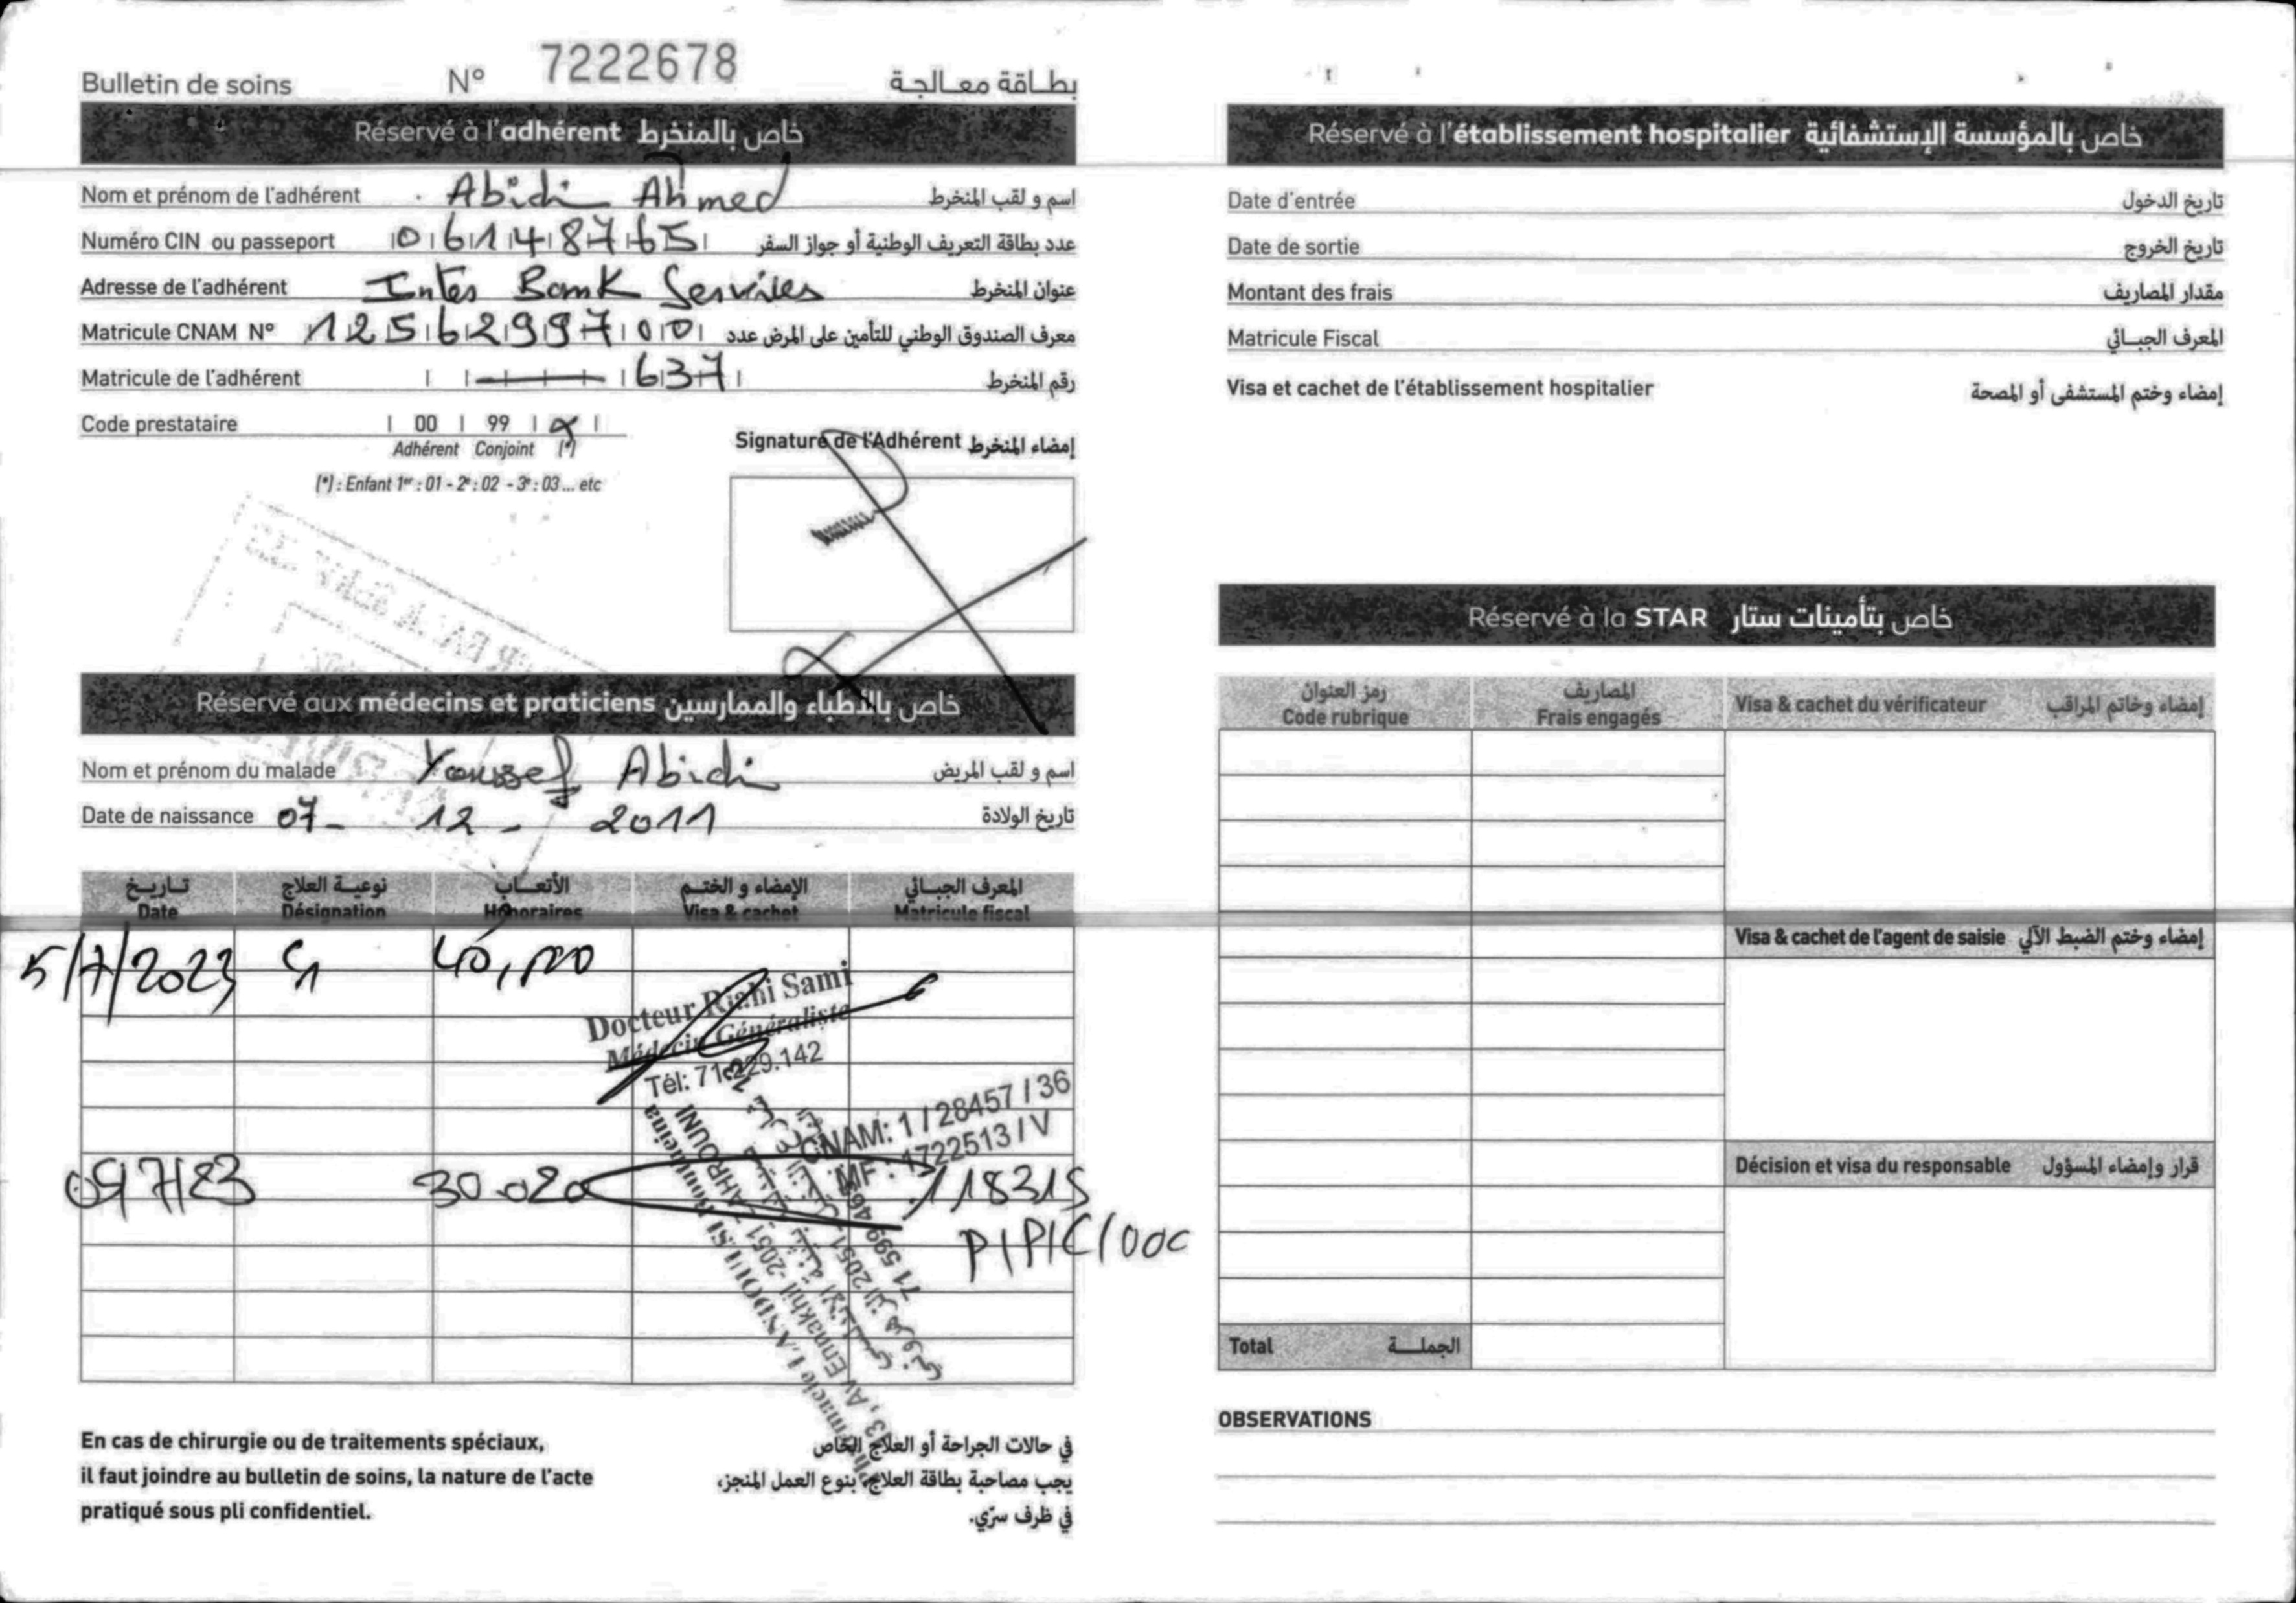 Bulletin de soins N° 7222678 بطاقة معالجة
Réservé à l'adhérent خاص بالمنخرط
Nom et prénom de l'adhérent Abidi Ahmed اسم و لقب المنخرط
Numéro CIN ou passeport 06148765 عدد بطاقة التعريف الوطنية أو جواز السفر
Adresse de l'adhérent Inter Bank Services عنوان المنخرط
Matricule CNAM N° 1256299700 معرف الصندوق الوطني للتأمين على المرض عدد
Matricule de l'adhérent 637 رقم المنخرط
Code prestataire | 00 | 99 | |
Adhérent Conjoint (*)
(*) : Enfant 1er : 01 - 2e : 02 - 3e : 03 ... etc
Signature de l'Adhérent إمضاء المنخرط
Réservé aux médecins et praticiens خاص بالأطباء والممارسين
Nom et prénom du malade Youssef Abidi اسم و لقب المريض
Date de naissance 07 - 12 - 2011 تاريخ الولادة
تاريخ نوعية العلاج الأتعاب الإمضاء و الختم المعرف الجبائي
Date Désignation Honoraires Visa & cachet Matricule fiscal
5/7/2023 C1 40,000
Docteur Riahi Sami
Médecin Généraliste
Tél: 71.229.142
CNAM: 1 / 28457 / 36
MF : 1722513 / V
09/7/23 30.020 118315
P/P/C/000
En cas de chirurgie ou de traitements spéciaux,
il faut joindre au bulletin de soins, la nature de l'acte
pratiqué sous pli confidentiel.
في حالات الجراحة أو العلاج الخاص
يجب مصاحبة بطاقة العلاج، بنوع العمل المنجز،
في ظرف سرّي.
Réservé à l'établissement hospitalier خاص بالمؤسسة الإستشفائية
Date d'entrée تاريخ الدخول
Date de sortie تاريخ الخروج
Montant des frais مقدار المصاريف
Matricule Fiscal المعرف الجبائي
Visa et cachet de l'établissement hospitalier إمضاء وختم المستشفى أو المصحة
Réservé à la STAR خاص بتأمينات ستار
رمز العنوان المصاريف
Code rubrique Frais engagés Visa & cachet du vérificateur إمضاء وخاتم المراقب
Visa & cachet de l'agent de saisie إمضاء وختم الضبط الآلي
Décision et visa du responsable قرار وإمضاء المسؤول
Total الجملة
OBSERVATIONS